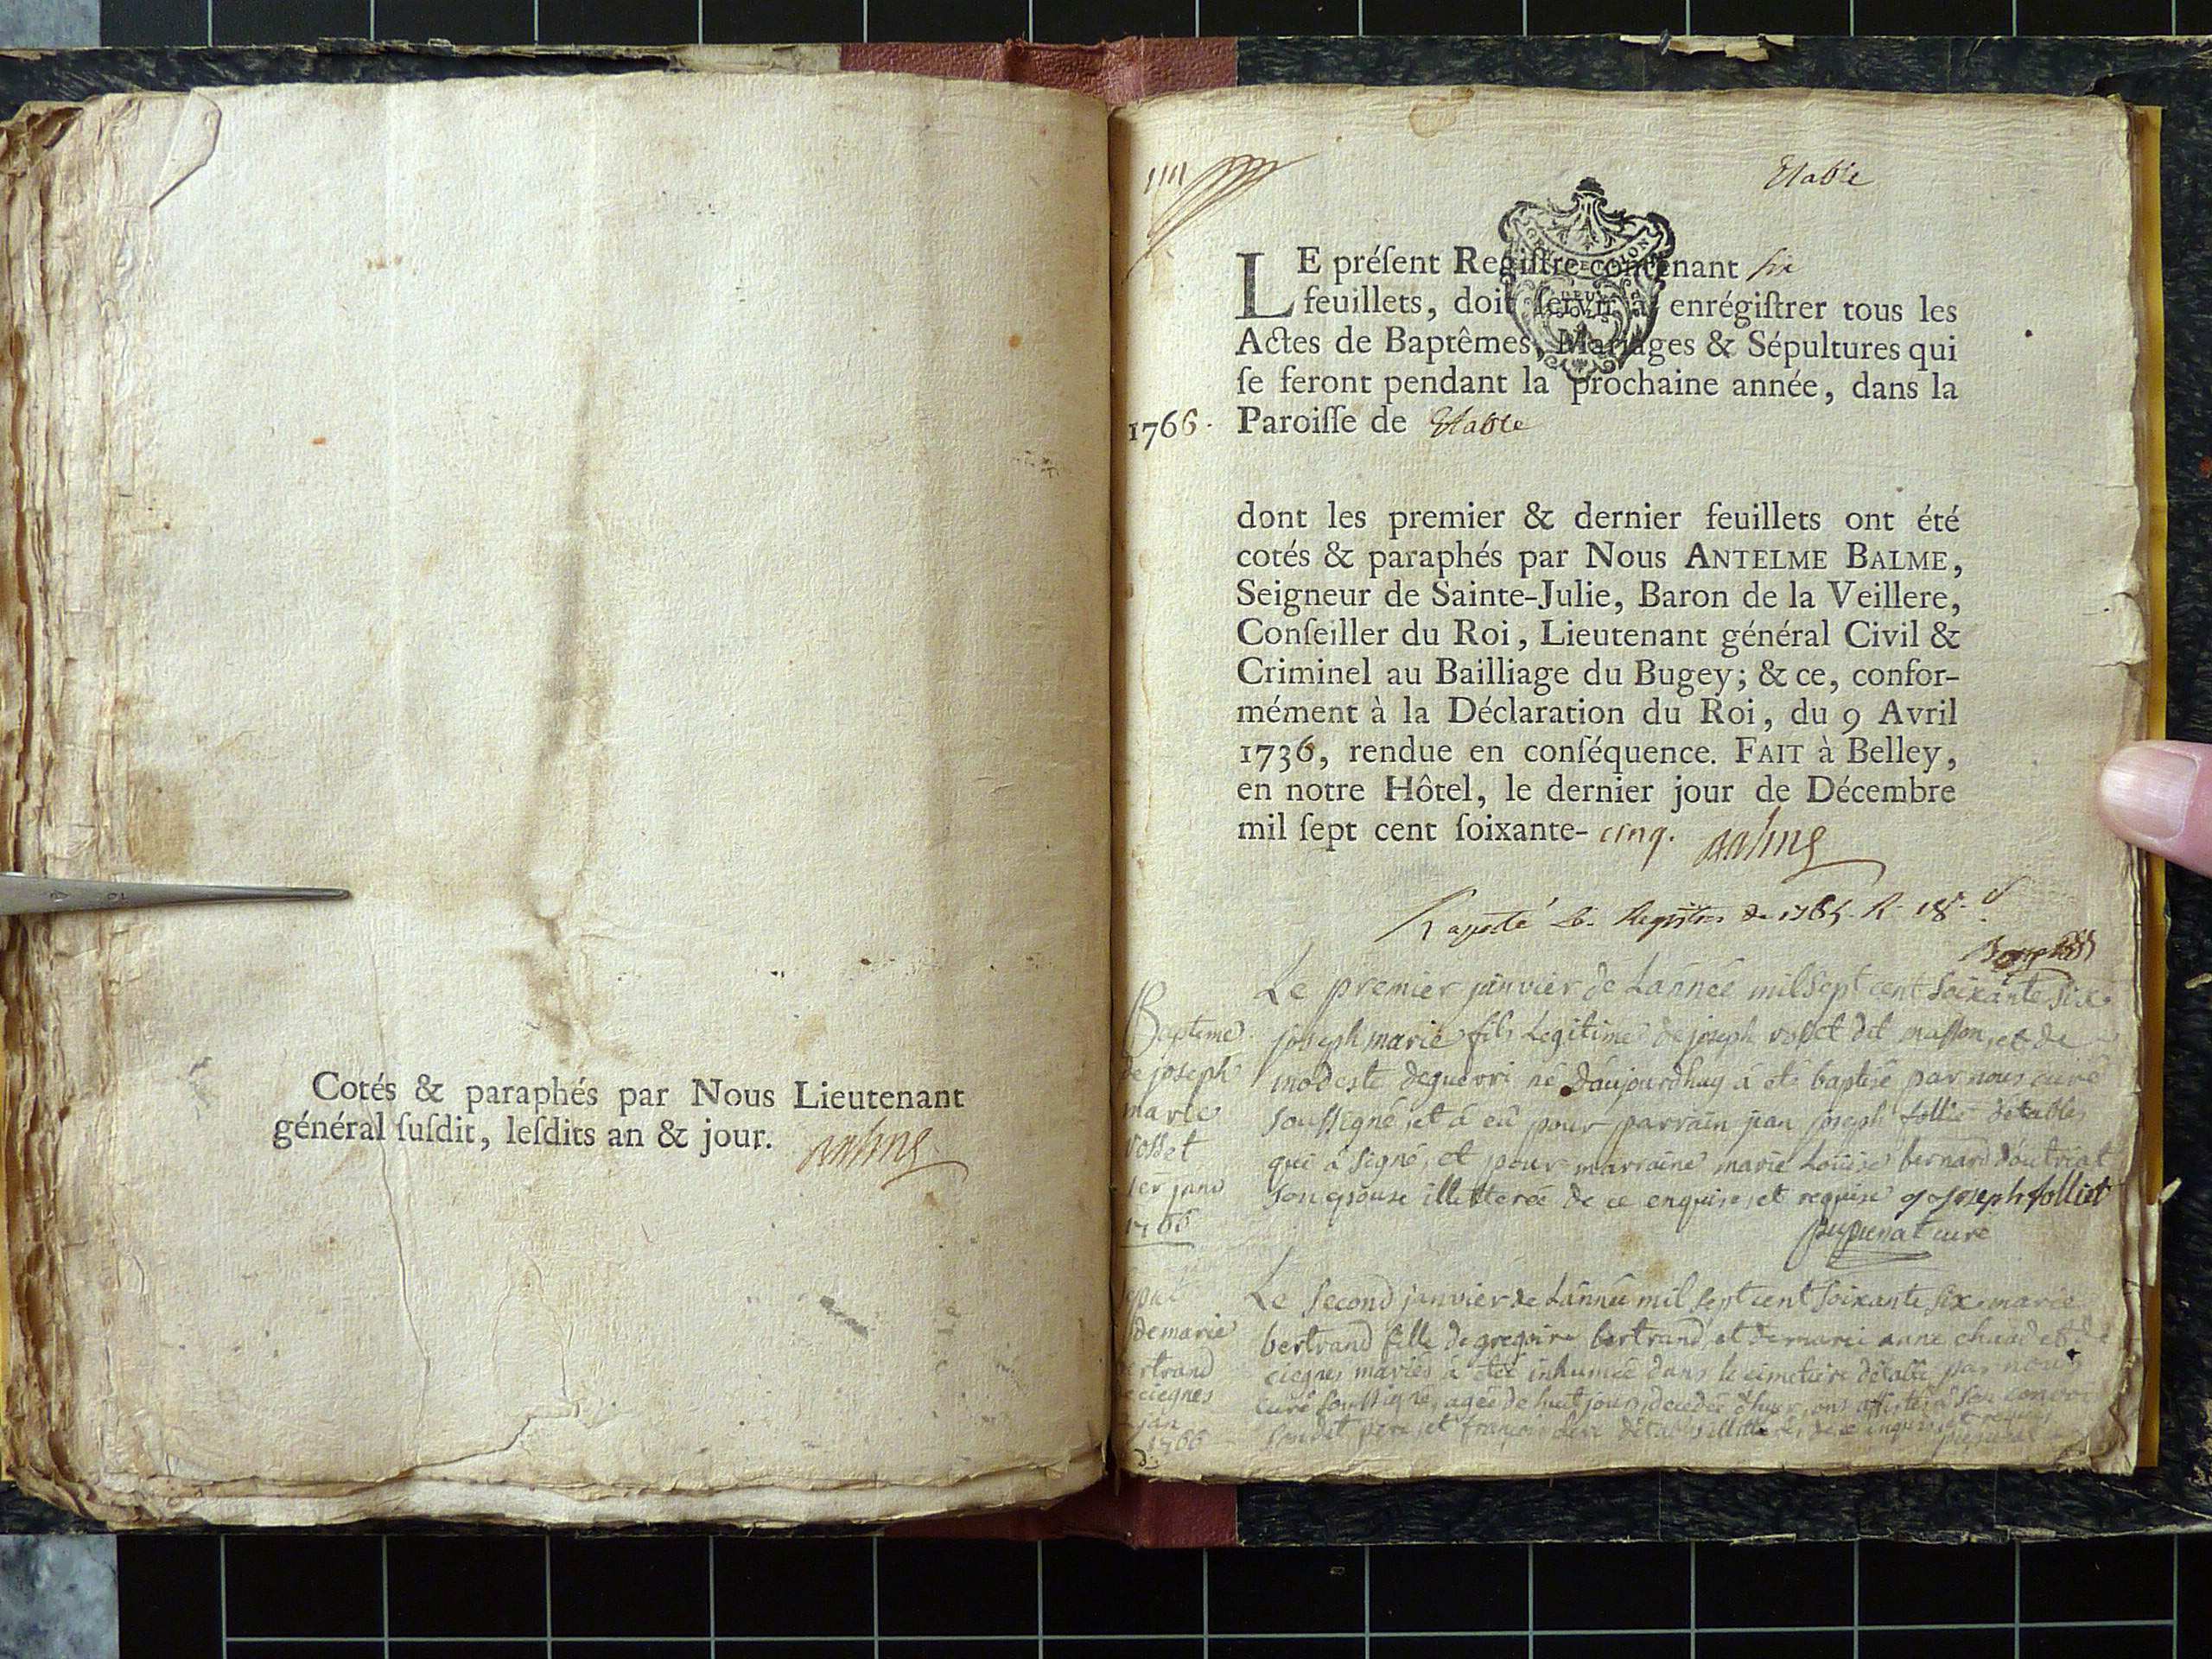 Cotés & paraphés par Nous Lieutenant
général ſuſdit, leſdits an & jour. Balme
Etable
LE préſent Regiſtre contenant six
feuillets, doit ſervir à enrégiſtrer tous les
Actes de Baptêmes, Mariages & Sépultures qui
ſe feront pendant la prochaine année, dans la
1766. Paroiſſe de Etable
dont les premier & dernier feuillets ont été
cotés & paraphés par Nous ANTELME BALME,
Seigneur de Sainte-Julie, Baron de la Veillere,
Conſeiller du Roi, Lieutenant général Civil &
Criminel au Bailliage du Bugey; & ce, confor-
mément à la Déclaration du Roi, du 9 Avril
1736, rendue en conſéquence. FAIT à Belley,
en notre Hôtel, le dernier jour de Décembre
mil ſept cent ſoixante- cinq. Balme
Registres de 1765
Bapteme
de joseph
marie
vosset
1er janv
1766
Le premier janvier de Lánneé mil sept cent Soixante Six
joseph marie fils Legitime de joseph vosset dit masson, et de
modeste deguerri né daujourdhuy á eté baptisé par nous curé
soussigné, et á eú pour parrain jean joseph follié détable,
qui á signé, et pour marraine marie Loüise bernard doutriat
son epouse illetterée de ce enquise, et requise joseph folliet
pupunat curé
sepul
de marie
bertrand
ciegnes
jan
1766
Le Second janvier de Lánneé mil sept cent soixante six marie
bertrand fille de gregoire bertrand, et de marie anne chuad et de
ciegnes mariés á eté inhumeé dans le cimetiere détable par nous
curé soussigné, ageé de huit jours, decedeé d'hyer, ont assistés á son convoi
son dit pere, et françois détable illitterés de ce enquis, et requis
pupunat